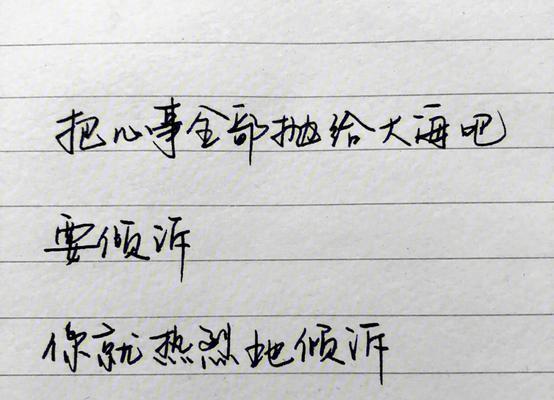 把心事全部抛给大海吧
要倾诉
你就热烈地倾诉